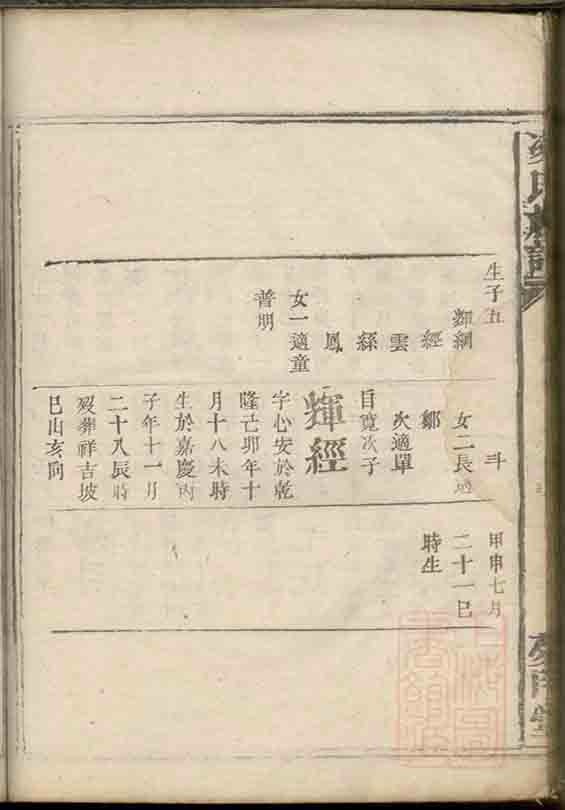 氏族譜
生子五
輝綱
經
雲
絲
鳳
女一適童
普明
斗
女二長適
鄒
次適單
目寬次子
輝經
字心安於乾
隆己卯年十
月十八未時
生於嘉慶丙
子年十一月
二十八辰時
歿葬祥吉坡
巳山亥向
甲申七月
二十一巳
時生